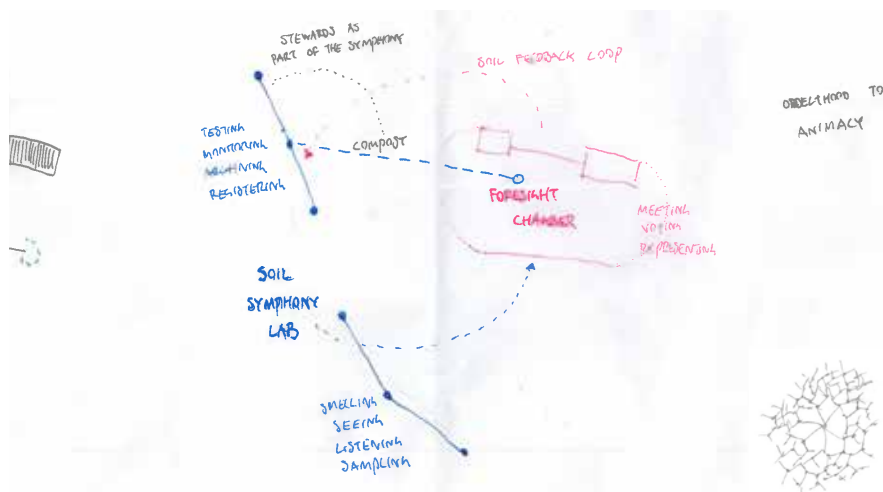 STEWARDS AS
PART OF THE SYMPHONY
SOIL FEEDBACK LOOP
TO
ANIMACY
TESTING
MONITORING
REGISTERING
COMPOST
FORESIGHT
CHAMBER
MEETING
VOTING
REPRESENTING
SOIL
SYMPHONY
LAB
SMELLING
SEEING
LISTENING
SAMPLING